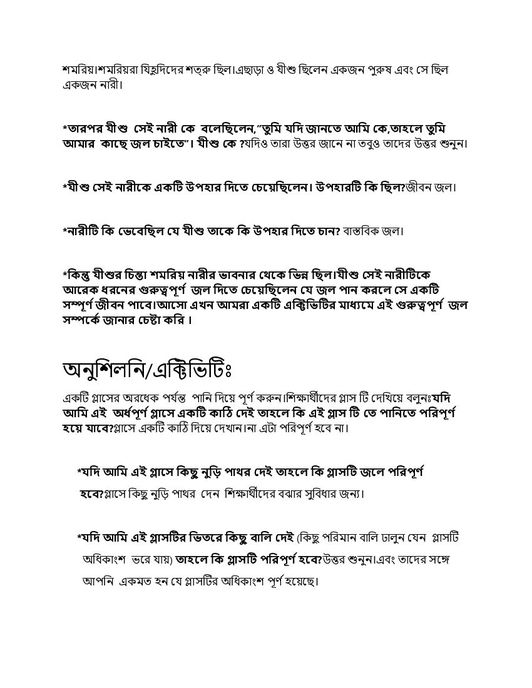 শমরিয়।শমরিয়রা যিহূদিদের শত্রু ছিল।এছাড়া ও যীশু ছিলেন একজন পুরুষ এবং সে ছিল
একজন নারী।
*তারপর যীশু সেই নারী কে বলেছিলেন,“তুমি যদি জানতে আমি কে,তাহলে তুমি
আমার কাছে জল চাইতে”। যীশু কে ?যদিও তারা উত্তর জানে না তবুও তাদের উত্তর শুনুন।
*যীশু সেই নারীকে একটি উপহার দিতে চেয়েছিলেন। উপহারটি কি ছিল?জীবন জল।
*নারীটি কি ভেবেছিল যে যীশু তাকে কি উপহার দিতে চান? বাস্তবিক জল।
*কিন্তু যীশুর চিন্তা শমরিয় নারীর ভাবনার থেকে ভিন্ন ছিল।যীশু সেই নারীটিকে
আরেক ধরনের গুরুত্বপূর্ণ জল দিতে চেয়েছিলেন যে জল পান করলে সে একটি
সম্পূর্ণ জীবন পাবে।আসো এখন আমরা একটি এক্টিভিটির মাধ্যমে এই গুরুত্বপূর্ণ জল
সম্পর্কে জানার চেষ্টা করি ।
অনুশিলনি/এক্টিভিটিঃ
একটি গ্লাসের অরধেক পর্যন্ত পানি দিয়ে পূর্ণ করুন।শিক্ষার্থীদের গ্লাস টি দেখিয়ে বলুনঃযদি
আমি এই অর্ধপূর্ণ গ্লাসে একটি কাঠি দেই তাহলে কি এই গ্লাস টি তে পানিতে পরিপূর্ণ
হয়ে যাবে?গ্লাসে একটি কাঠি দিয়ে দেখান।না এটা পরিপূর্ণ হবে না।
*যদি আমি এই গ্লাসে কিছু নুড়ি পাথর দেই তাহলে কি গ্লাসটি জলে পরিপূর্ণ
হবে?গ্লাসে কিছু নুড়ি পাথর দেন শিক্ষার্থীদের বঝার সুবিধার জন্য।
*যদি আমি এই গ্লাসটির ভিতরে কিছু বালি দেই (কিছু পরিমান বালি ঢালুন যেন গ্লাসটি
অধিকাংশ ভরে যায়) তাহলে কি গ্লাসটি পরিপূর্ণ হবে?উত্তর শুনুন।এবং তাদের সঙ্গে
আপনি একমত হন যে গ্লাসটির অধিকাংশ পূর্ণ হয়েছে।